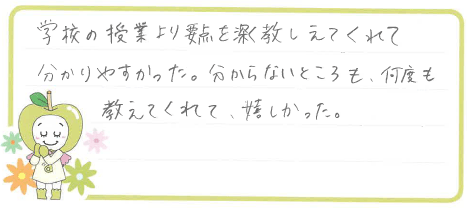 学校の授業より要点を深く教しえてくれて
分かりやすかった。分からないところも、何度も
教えてくれて、嬉しかった。